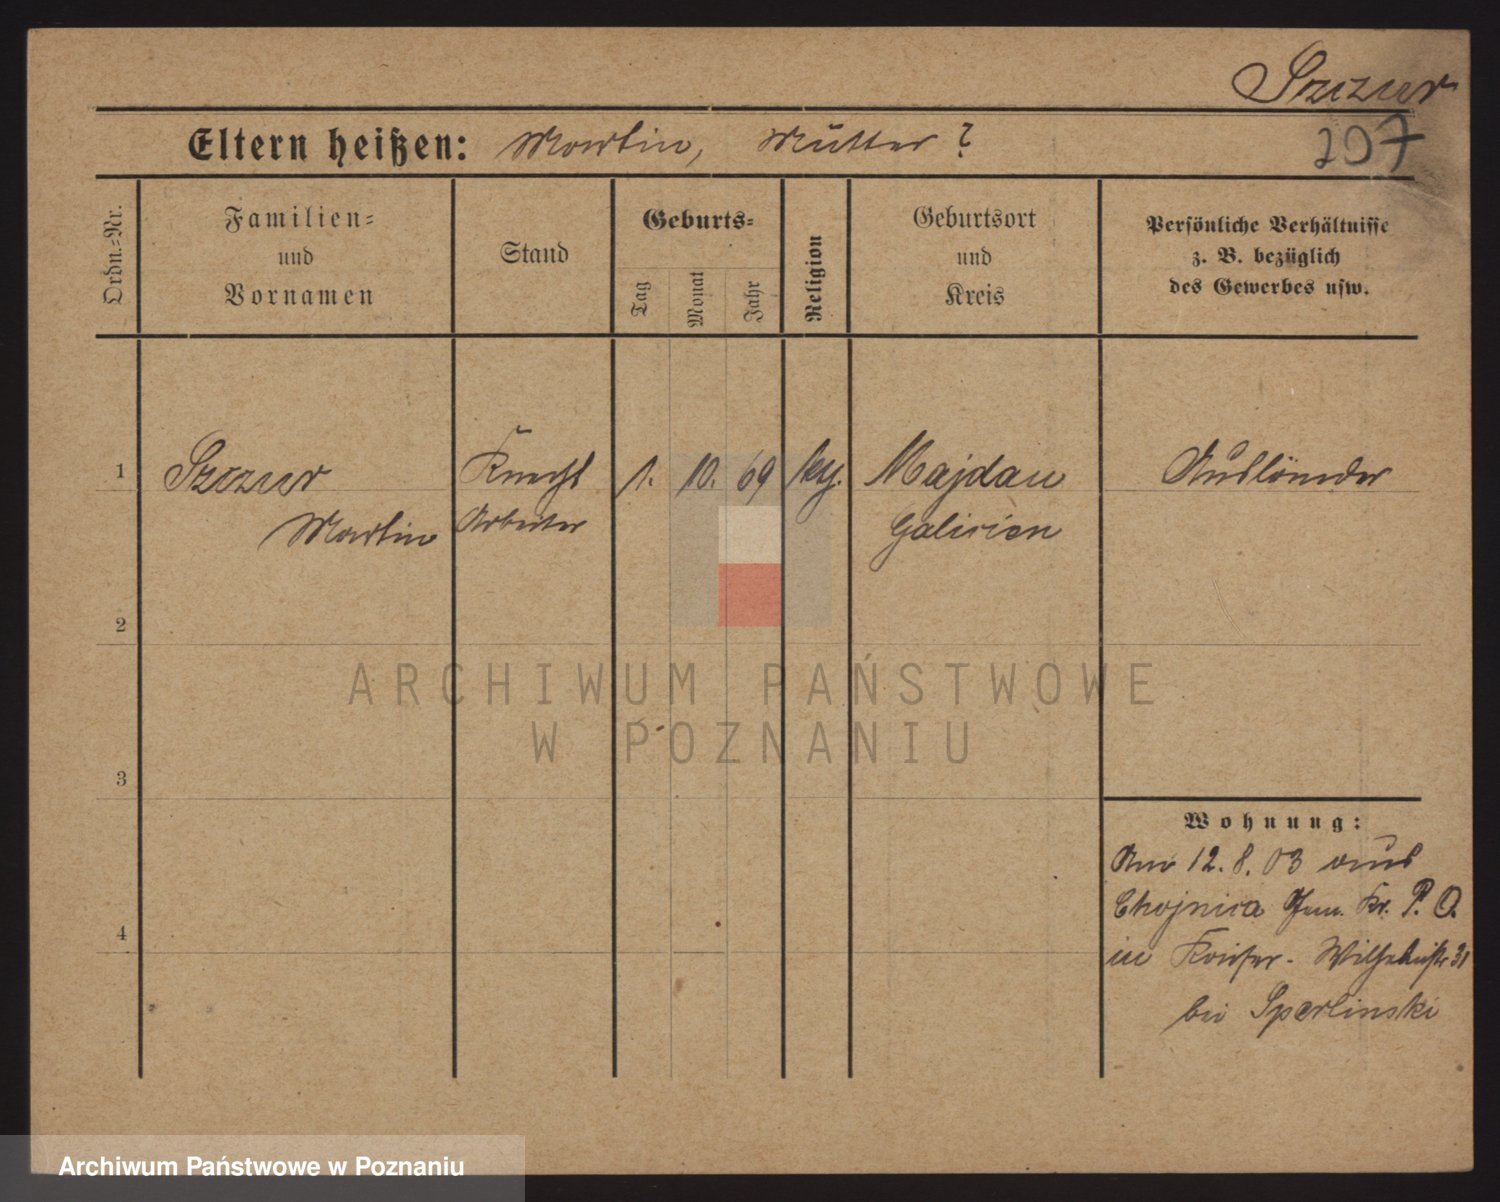 Szczur
207
Eltern heißen: Martin, Mutter ?
Ordn.-Nr.
Familien-
und
Vornamen
Stand
Geburts-
Tag
Monat
Jahr
Religion
Geburtsort
und
Kreis
Persönliche Verhältnisse
z. B. bezüglich
des Gewerbes usw.
1
Szczur
Martin
Knecht
Arbeiter
1. 10. 69
Majdan
Galizien
Ausländer
2
ARCHIWUM PAŃSTWOWE
W POZNANIU
3
4
Wohnung:
Am 12. 8. 03 aus
Chojnica Gem. Kr. P. O.
in Kaiser- Wilhelmstr 31
bei Sperlinski
Archiwum Państwowe w Poznaniu